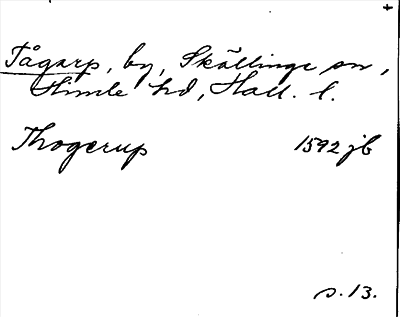 Tågarp, by, Skällinge sn,
Himle hd, Hall. l.
Thogerup 1592 jb
s. 13.